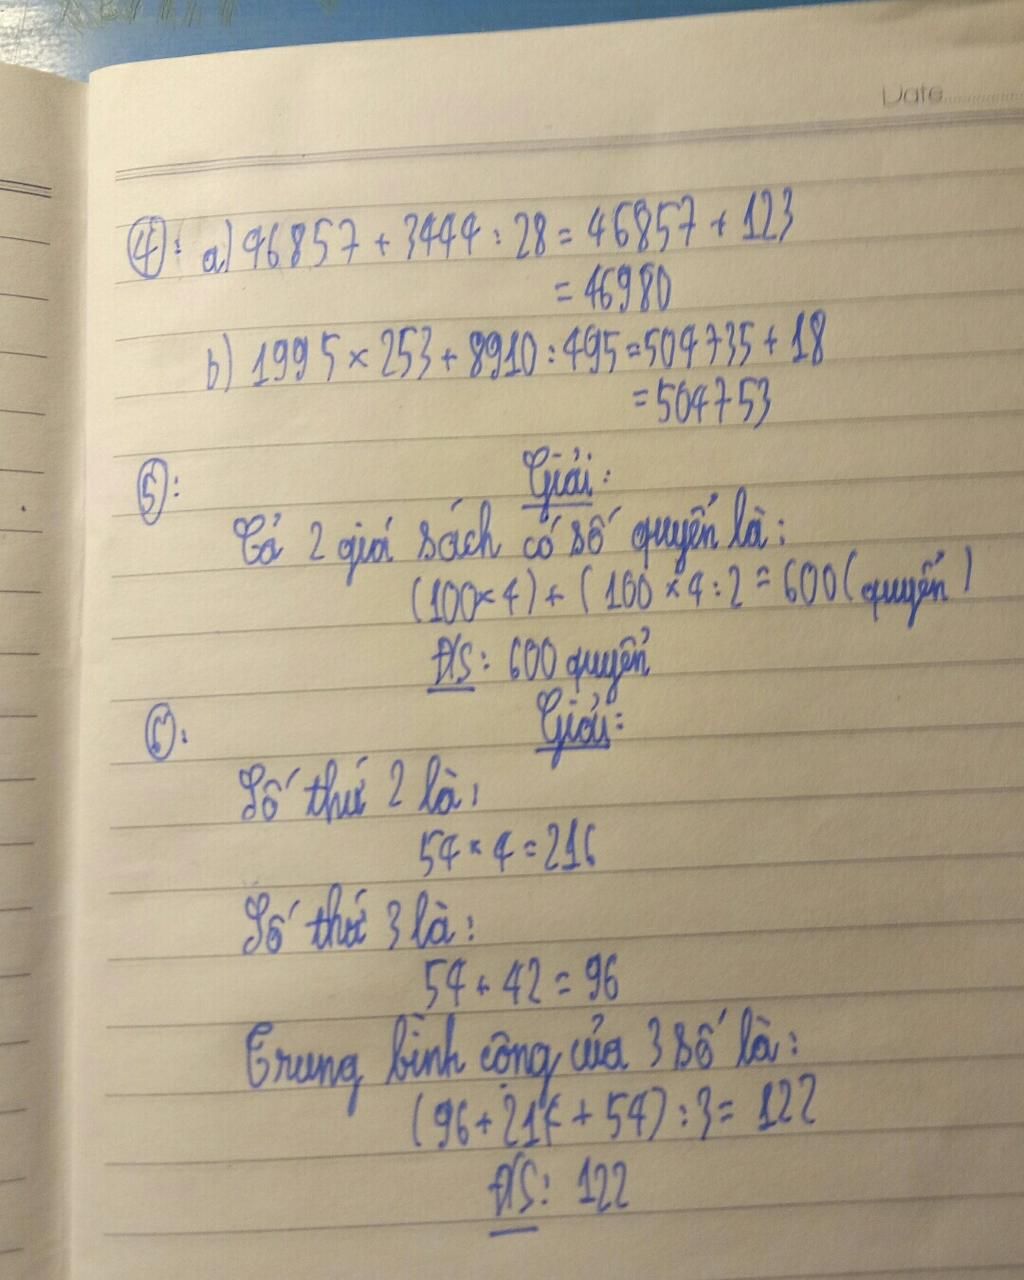 Date
4: a) 46857 + 3444 : 28 = 46857 + 123
= 46980
b) 1995 × 253 + 8910 : 495 = 504735 + 18
= 504753
5: Giải:
Cả 2 giá sách có số quyển là:
(100 × 4) + (100 × 4 : 2 = 600 (quyển)
Đ/S: 600 quyển
6: Giải:
Số thứ 2 là:
54 × 4 = 216
Số thứ 3 là:
54 + 42 = 96
Trung bình cộng của 3 số là:
(96 + 216 + 54) : 3 = 122
Đ/S: 122